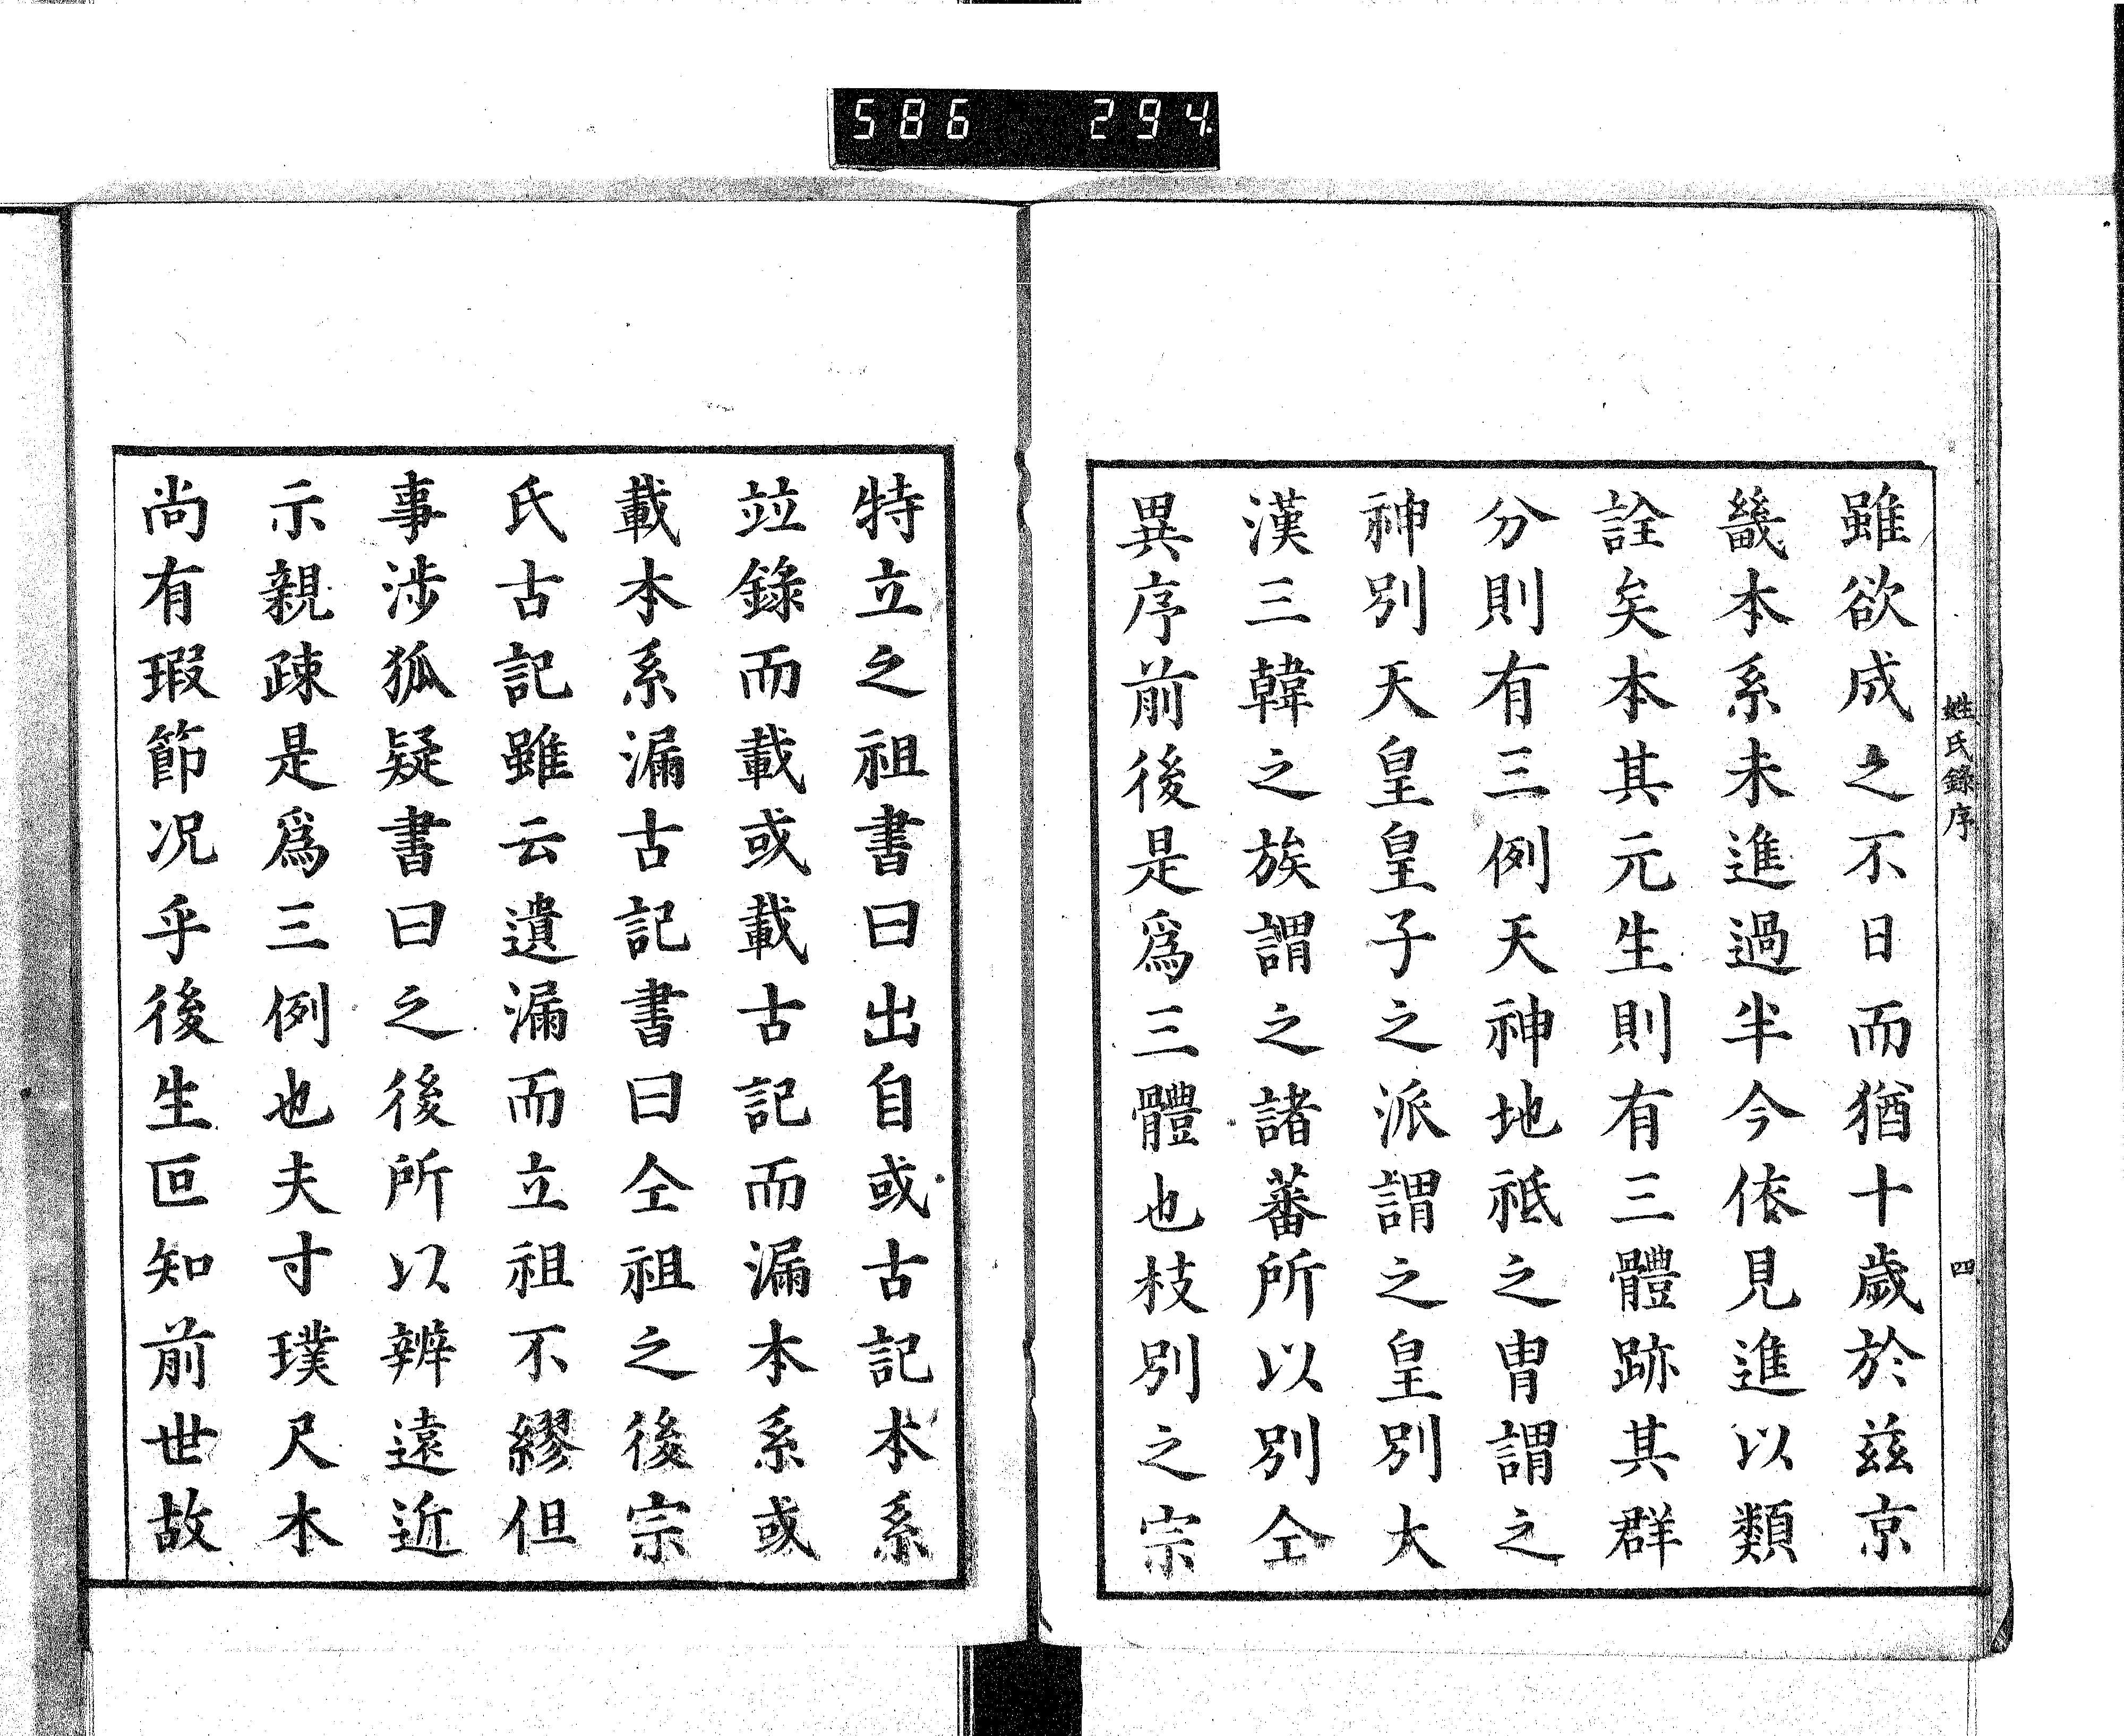 586 294
姓氏錄序 四
雖欲成之不日而猶十歲於茲京
畿本系未進過半今依見進以類
詮矣本其元生則有三體跡其群
分則有三例天神地祇之冑謂之
神別天皇皇子之派謂之皇別大
漢三韓之族謂之諸蕃所以別仝
異序前後是爲三體也枝別之宗
特立之祖書曰出自或古記本系
竝錄而載或載古記而漏本系或
載本系漏古記書曰仝祖之後宗
氏古記雖云遺漏而立祖不繆但
事涉狐疑書曰之後所以辨遠近
示親疎是爲三例也夫寸璞尺木
尚有瑕節况乎後生叵知前世故